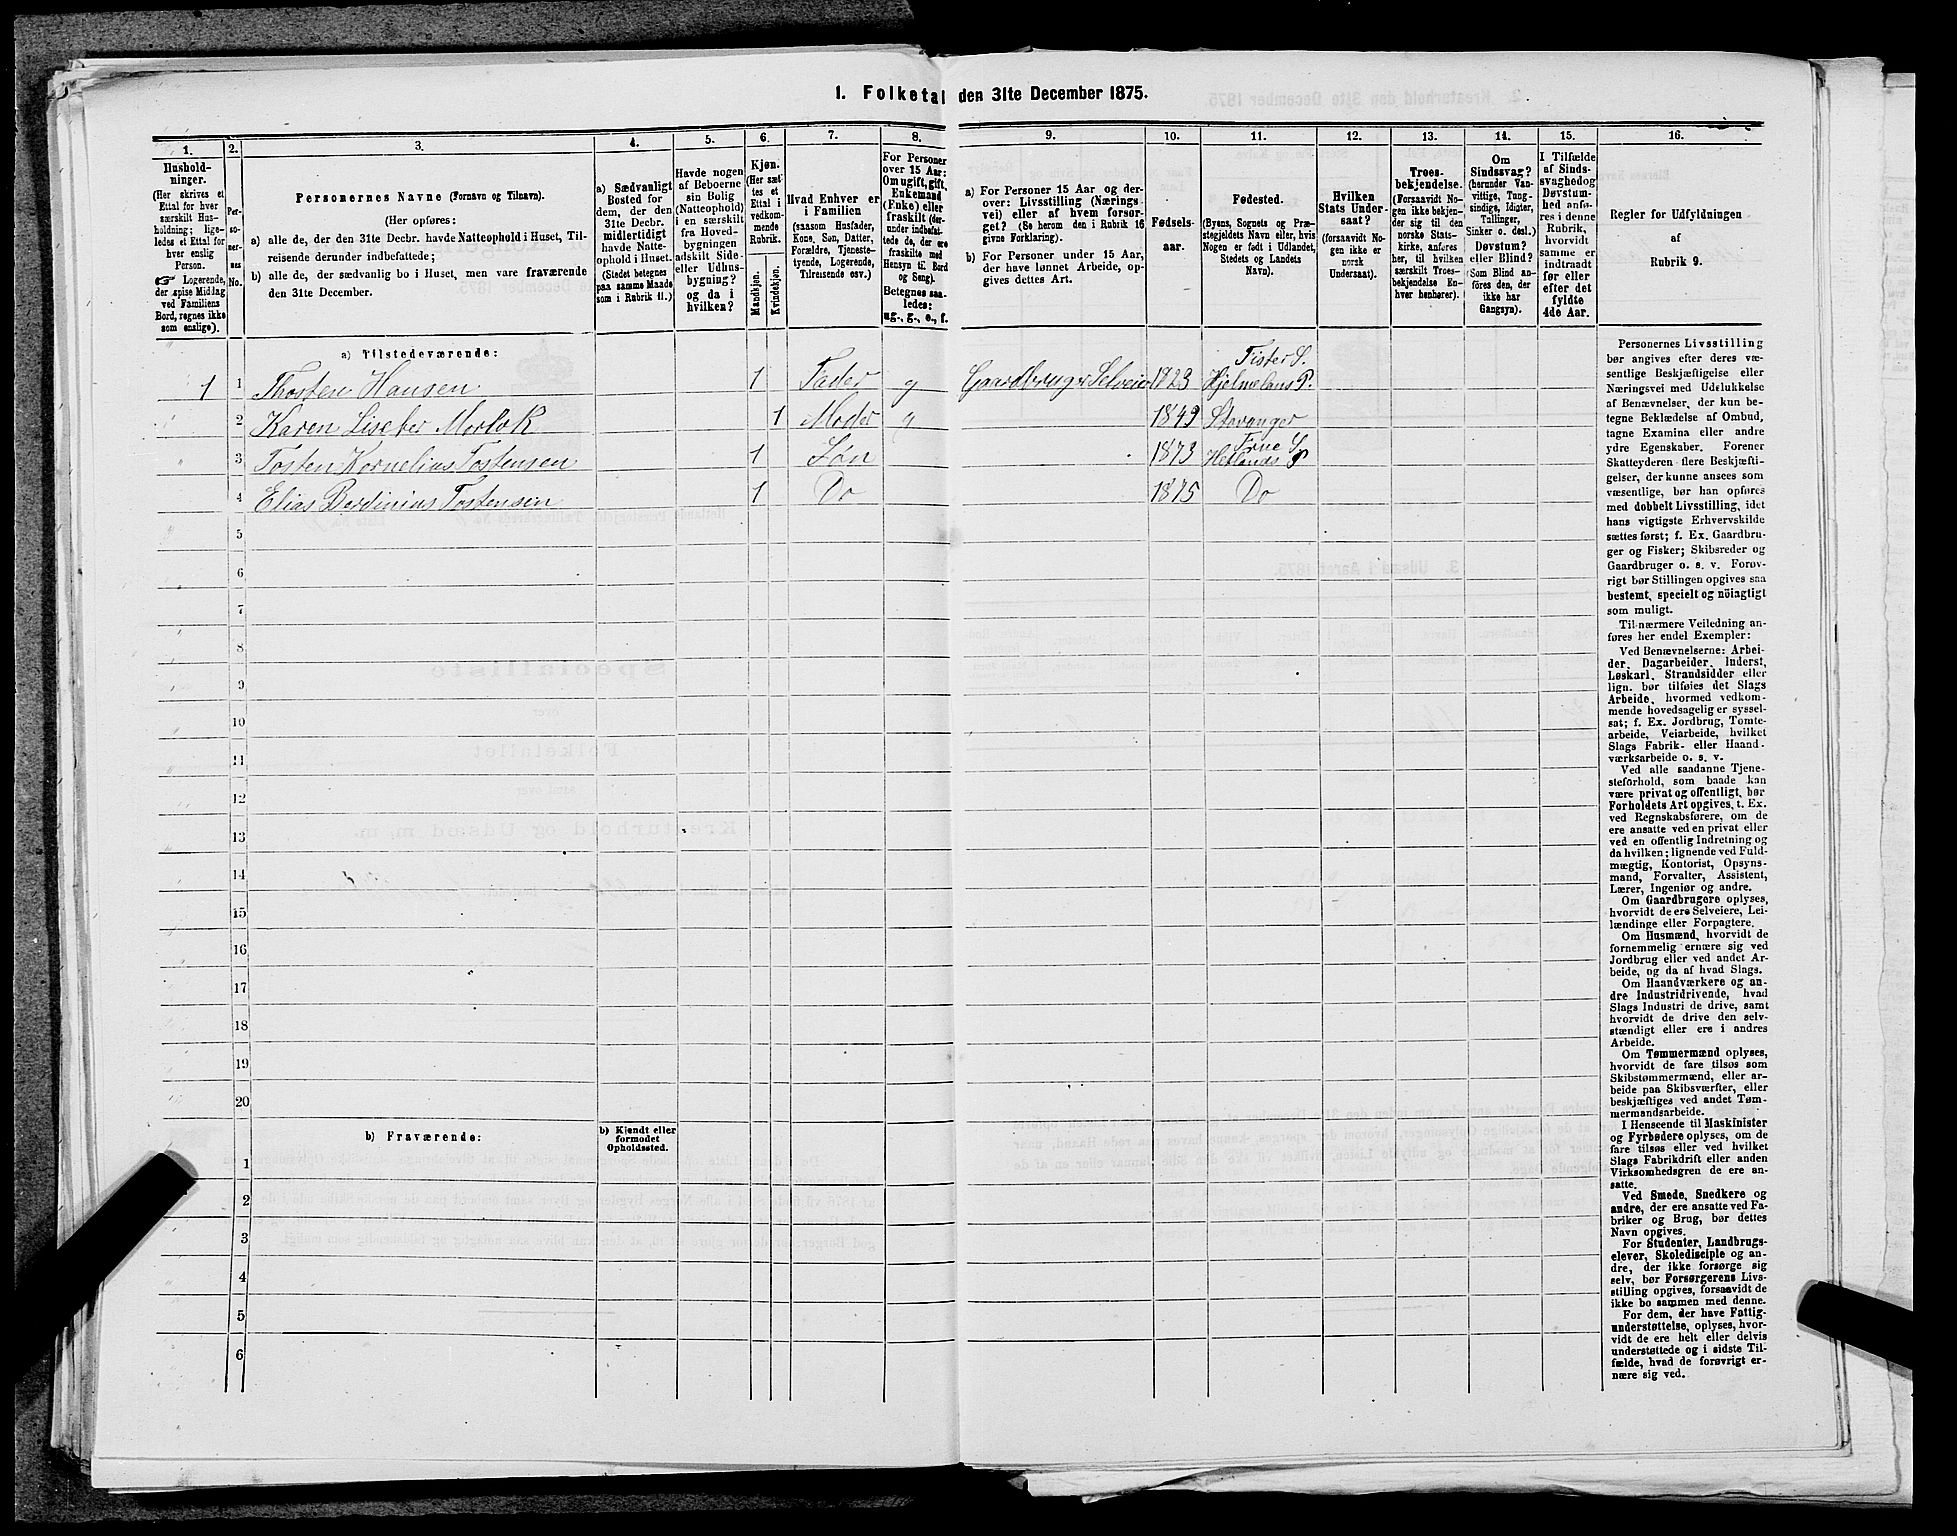 1. Folketal den 31te December 1875.
1.
Hushold-
ninger.
(Her skrives et
Ettal for hver
særskilt Hus-
holdning; lige-
ledes et Ettal for
hver enslig
Person.
☞ Logerende,
der spise Middag
ved Familiens
Bord, regnes ikke
som enslige).
2.
Per-
so-
ner-
nes
No.
3.
Personernes Navne (Fornavn og Tilnavn).
(Her opføres:
a) alle de, der den 31te Decbr. havde Natteophold i Huset, Til-
reisende derunder indbefattede;
b) alle de, der sædvanlig bo i Huset, men vare fraværende
den 31te December.
4.
a) Sædvanligt
Bosted for
dem, der den
31te Decbr.
midlertidigt
havde Natte-
ophold i Huset.
(Stedet betegnes
paa samme Maade
som i Rubrik 11.)
5.
Havde nogen
af Beboerne
sin Bolig
(Natteophold)
i en særskilt
fra Hoved-
bygningen
adskilt Side-
eller Udhus-
bygning?
og da i
hvilken?
6.
Kjøn.
(Her sæt-
tes et
Ettal i
vedkom-
mende
Rubrik.
Mandkjøn.
Kvindekjøn.
7.
Hvad Enhver er
i Familien
(saasom Husfader,
Kone, Søn, Datter,
Forældre, Tjeneste-
tyende, Logerende,
Tilreisende osv.)
8.
For Personer
over 15 Aar:
Om ugift, gift,
Enkemand
(Enke) eller
fraskilt (der-
under indbefat-
tede de, der ere
fraskilte med
Hensyn til Bord
og Seng).
Betegnes saa-
ledes:
ug., g., e., f.
9.
a) For Personer 15 Aar og der-
over: Livsstilling (Nærings-
vei) eller af hvem forsør-
get? (Se herom den i Rubrik 16
givne Forklaring).
b) For Personer under 15 Aar,
der have lønnet Arbeide, op-
gives dettes Art.
10.
Fødsels-
aar.
11.
Fødested.
(Byens, Sognets og Præ-
stegjeldets Navn eller, hvis
Nogen er født i Udlandet,
Stedets og Landets
Navn).
12.
Hvilken
Stats Under-
saat?
(forsaavidt No-
gen ikke er
norsk
Undersaat).
13.
Troes-
bekjendelse.
(Forsaavidt No-
gen ikke bekjen-
der sig til den
norske Stats-
kirke, anføres
her, til hvilken
særskilt Troes-
bekjendelse En-
hver henhører).
14.
Om
Sindssvag?
(herunder Van-
vittige, Tung-
sindige, Idioter,
Tullinger,
Sinker o. desl.)
Døvstum?
eller Blind?
(Som Blind an-
føres den, der
ikke har
Gangsyn).
15.
I Tilfælde
af Sinds-
svaghed og
Døvstum-
hed anfø-
res i denne
Rubrik,
hvorvidt
samme er
indtraadt
før eller
efter det
fyldte
4de Aar.
16.
Regler for Udfyldningen
af
Rubrik 9.
a) Tilstedeværende:
1 1 Thosten Hansen 1 Fader g Gaardbruger Selveier 1823 Fister S. Hjelmelans P.
2 Karen Lisebet Morlok 1 Moder g 1849 Stavanger
3 Tosten Kornelius Tostensen 1 Søn 1873 Frue S Hetlands P
4 Elias Berdinius Tostensen 1 Do 1875 Do
5
6
7
8
9
10
11
12
13
14
15
16
17
18
19
20
b) Fraværende:
b) Kjendt eller
formodet
Opholdssted.
1
2
3
4
5
6
Personernes Livsstilling
bør angives efter deres væ-
sentlige Beskjæftigelse eller
Næringsvei med Udelukkelse
af Benævnelser, der kun be-
tegne Beklædelse af Ombud,
tagne Examina eller andre
ydre Egenskaber. Forener
Skatteyderen flere Beskjæfti-
gelser, der kunne ansees som
væsentlige, bør han opføres
med dobbelt Livsstilling, idet
hans vigtigste Erhvervskilde
sættes først; f. Ex. Gaardbru-
ger og Fisker; Skibsreder og
Gaardbruger o. s. v. Forøv-
rigt bør Stillingen opgives saa
bestemt, specielt og nöiagtigt
som muligt.
Til nærmere Veiledning an-
føres her endel Exempler:
Ved Benævnelserne: Arbei-
der, Dagarbeider, Inderst,
Løskarl, Strandsidder eller
lign. bør tilføies det Slags
Arbeide, hvormed vedkom-
mende hovedsagelig er syssel-
sat; f. Ex. Jordbrug, Tomte-
arbeide, Veiarbeide, hvilket
Slags Fabrik- eller Haand-
værksarbeide o. s. v.
Ved alle saadanne Tjene-
steforhold, som baade kan
være privat og offentligt, bør
Forholdets Art opgives, t. Ex.
ved Regnskabsførere, om de
ere ansatte ved en privat eller
ved en offentlig Indretning og
da hvilken; lignende ved Fuld-
mægtig, Kontorist, Opsyns-
mand, Forvalter, Assistent,
Lærer, Ingeniør og andre.
Om Gaardbrugere oplyses,
hvorvidt de ere Selveiere, Lei-
lændinge eller Forpagtere.
Om Husmænd, hvorvidt de
fornemmelig ernære sig ved
Jordbrug eller ved andet Ar-
beide, og da af hvad Slags.
Om Haandværkere og an-
dre Industridrivende, hvad
Slags Industri de drive, samt
hvorvidt de drive den selv-
stændigt eller ere i andres
Arbeide.
Om Tømmermænd oplyses,
hvorvidt de fare tilsøs som
Skibstømmermænd, eller ar-
beide paa Skibsværfter, eller
beskjæftiges ved andet Tøm-
mermandsarbeide.
I Henseende til Maskinister
og Fyrbødere oplyses, om de
fare tilsøs eller ved hvilket
Slags Fabrikdrift eller anden
Virksomhedsgren de ere an-
satte.
Ved Smede, Snedkere og
andre, der ere ansatte ved Fa-
briker og Brug, bør dettes
Navn opgives.
For Studenter, Landbrugs-
elever, Skoledisciple og an-
dre, der ikke forsørge sig
selv, bør Forsørgerens Livs-
stilling opgives, forsaavidt de
ikke bo sammen med denne.
For dem, der have Fattig-
understøttelse, oplyses, hvor-
vidt de ere helt eller delvis
understøttede og i sidste Til-
fælde, hvad de forøvrigt er-
nære sig ved.